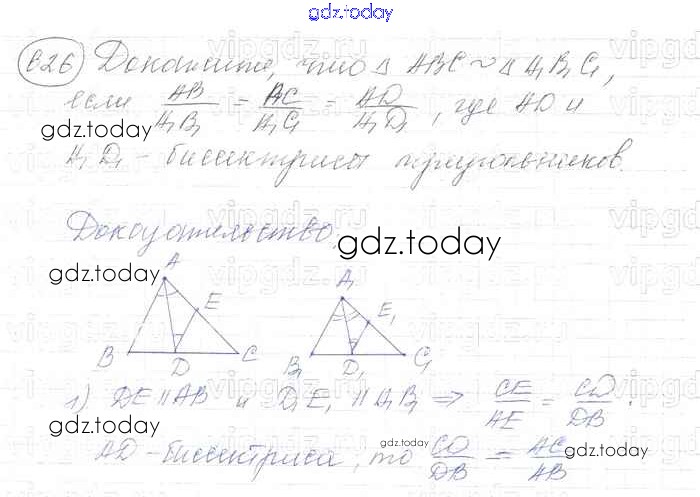 gdz.today
826 Докажите, что △ ABC ~ △ A₁B₁C₁,
если AB/A₁B₁ = AC/A₁C₁ = AD/A₁D₁, где AD и
gdz.today
A₁D₁ - биссектрисы треугольников.
Доказательство,
gdz.today
gdz.today
A
E
B
D
C
A₁
E₁
B₁
D₁
C₁
1) DE || AB и D₁E₁ || A₁B₁ => CE/AE = CD/DB .
gdz.today
AD - биссектриса, то CD/DB = AC/AB
gdz.today
gdz.today